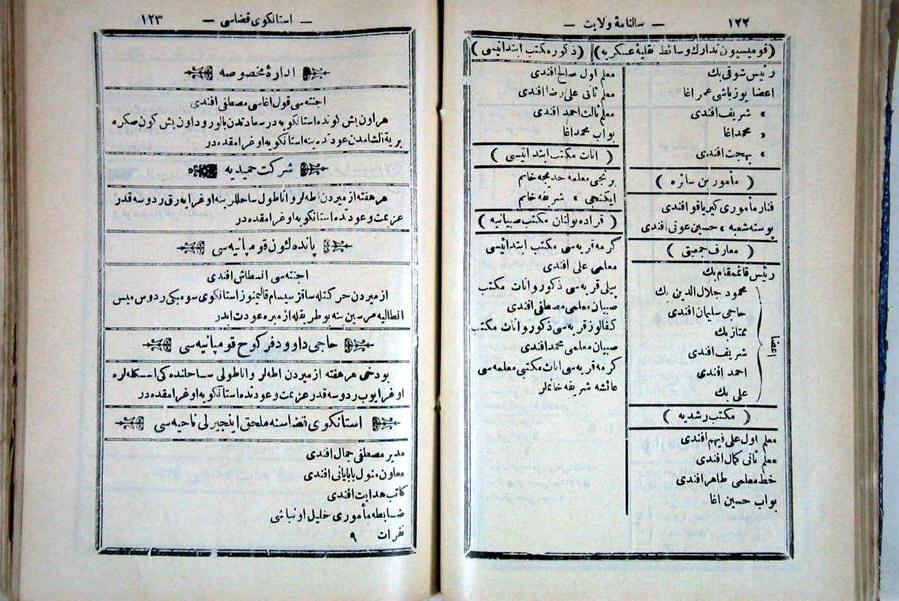 ١٢٢ — سالنامهٔ ولایت —
( قومیسیون تدارك وسائط نقلیهٔ عسکریه )
رئیس شوقی بك
اعضا یوزباشی عمر اغا
» شریف افندی
» محمد اغا
» بهجت افندی
( مأمورین سائره )
فنار مأموری کیریاقو افندی
پوسته شعبه » حسین عونی افندی
( معارف جمعیتی )
رئیس قائممقام بك
اعضا
محمود جلال الدین بك
حاجی سلیمان افندی
ممتاز بك
شریف افندی
احمد افندی
علی بك
( مکتب رشدیه )
معلم اول علی فهیم افندی
معلم ثانی کمال افندی
خط معلمی طاهر افندی
بواب حسین اغا
( ذکور مکتب ابتدائیسی )
معلم اول صالح افندی
معلم ثانی علی رضا افندی
معلم ثالث احمد افندی
بواب محمد اغا
( اناث مکتب ابتدائیسی )
برنجی معلمه خدیجه خانم
ایکنجی » شریفه خانم
( قراده بولنان مکتب صبیانیه )
کرمه قریه سی مکتب ابتدائیسی
معلمی علی افندی
پیلی قریه سی ذکور و اناث مکتب
صبیان معلمی مصطفی افندی
کفالوز قریه سی ذکور و اناث مکتب
صبیان معلمی محمد افندی
کرمه قریه سی اناث مکتبی معلمه سی
عائشه شریفه خانملر
— استانکوی قضاسی — ١٢٣
ادارهٔ مخصوصه
اجنته سی قول اغاسی مصطفی افندی
هر اون بش کونده استانکویه درسعادتدن بالورود اون بش کون صکره
بریة الشامدن عودتده ینه استانکویه اوغرامقده در
شرکت حمیدیه
هر هفته ازمیردن اطه لر و اناطولی ساحللرینه اوغرایه رق ردوسه قدر
عزیمت و عودتده استانکویه اوغرامقده در
پانده لئون قومپانیه سی
اجنته سی انسطاش افندی
ازمیردن حرکتله ساقز سیسام قالیمنوز استانکوی سومبکی ردوس میس
انطالیه مرسین ینه بو طریقله ازمیره عودت ایدر
حاجی داوود فرکوح قومپانیه سی
بو دخی هر هفته ازمیردن اطه لر و اناطولی ساحلنده کی اسکله لره
اوغرایوب ردوسه قدر عزیمت و عودتده استانکویه اوغرامقده در
استانکوی قضاسنه ملحق اینجیرلی ناحیه سی
مدیر مصطفی جمال افندی
معاون منول پاپایانی افندی
کاتب هدایت افندی
ضابطه مأموری خلیل اونباشی
نفرات ٩